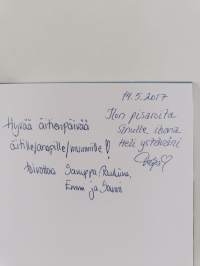 14.5.2017
Ilon pisaroita
Sinulle ihana
Heli ystäväni
Hyvää äitienpäivää
äitille/anopille/mummille
toivottaa Samppa, Pauliina,
Emma ja